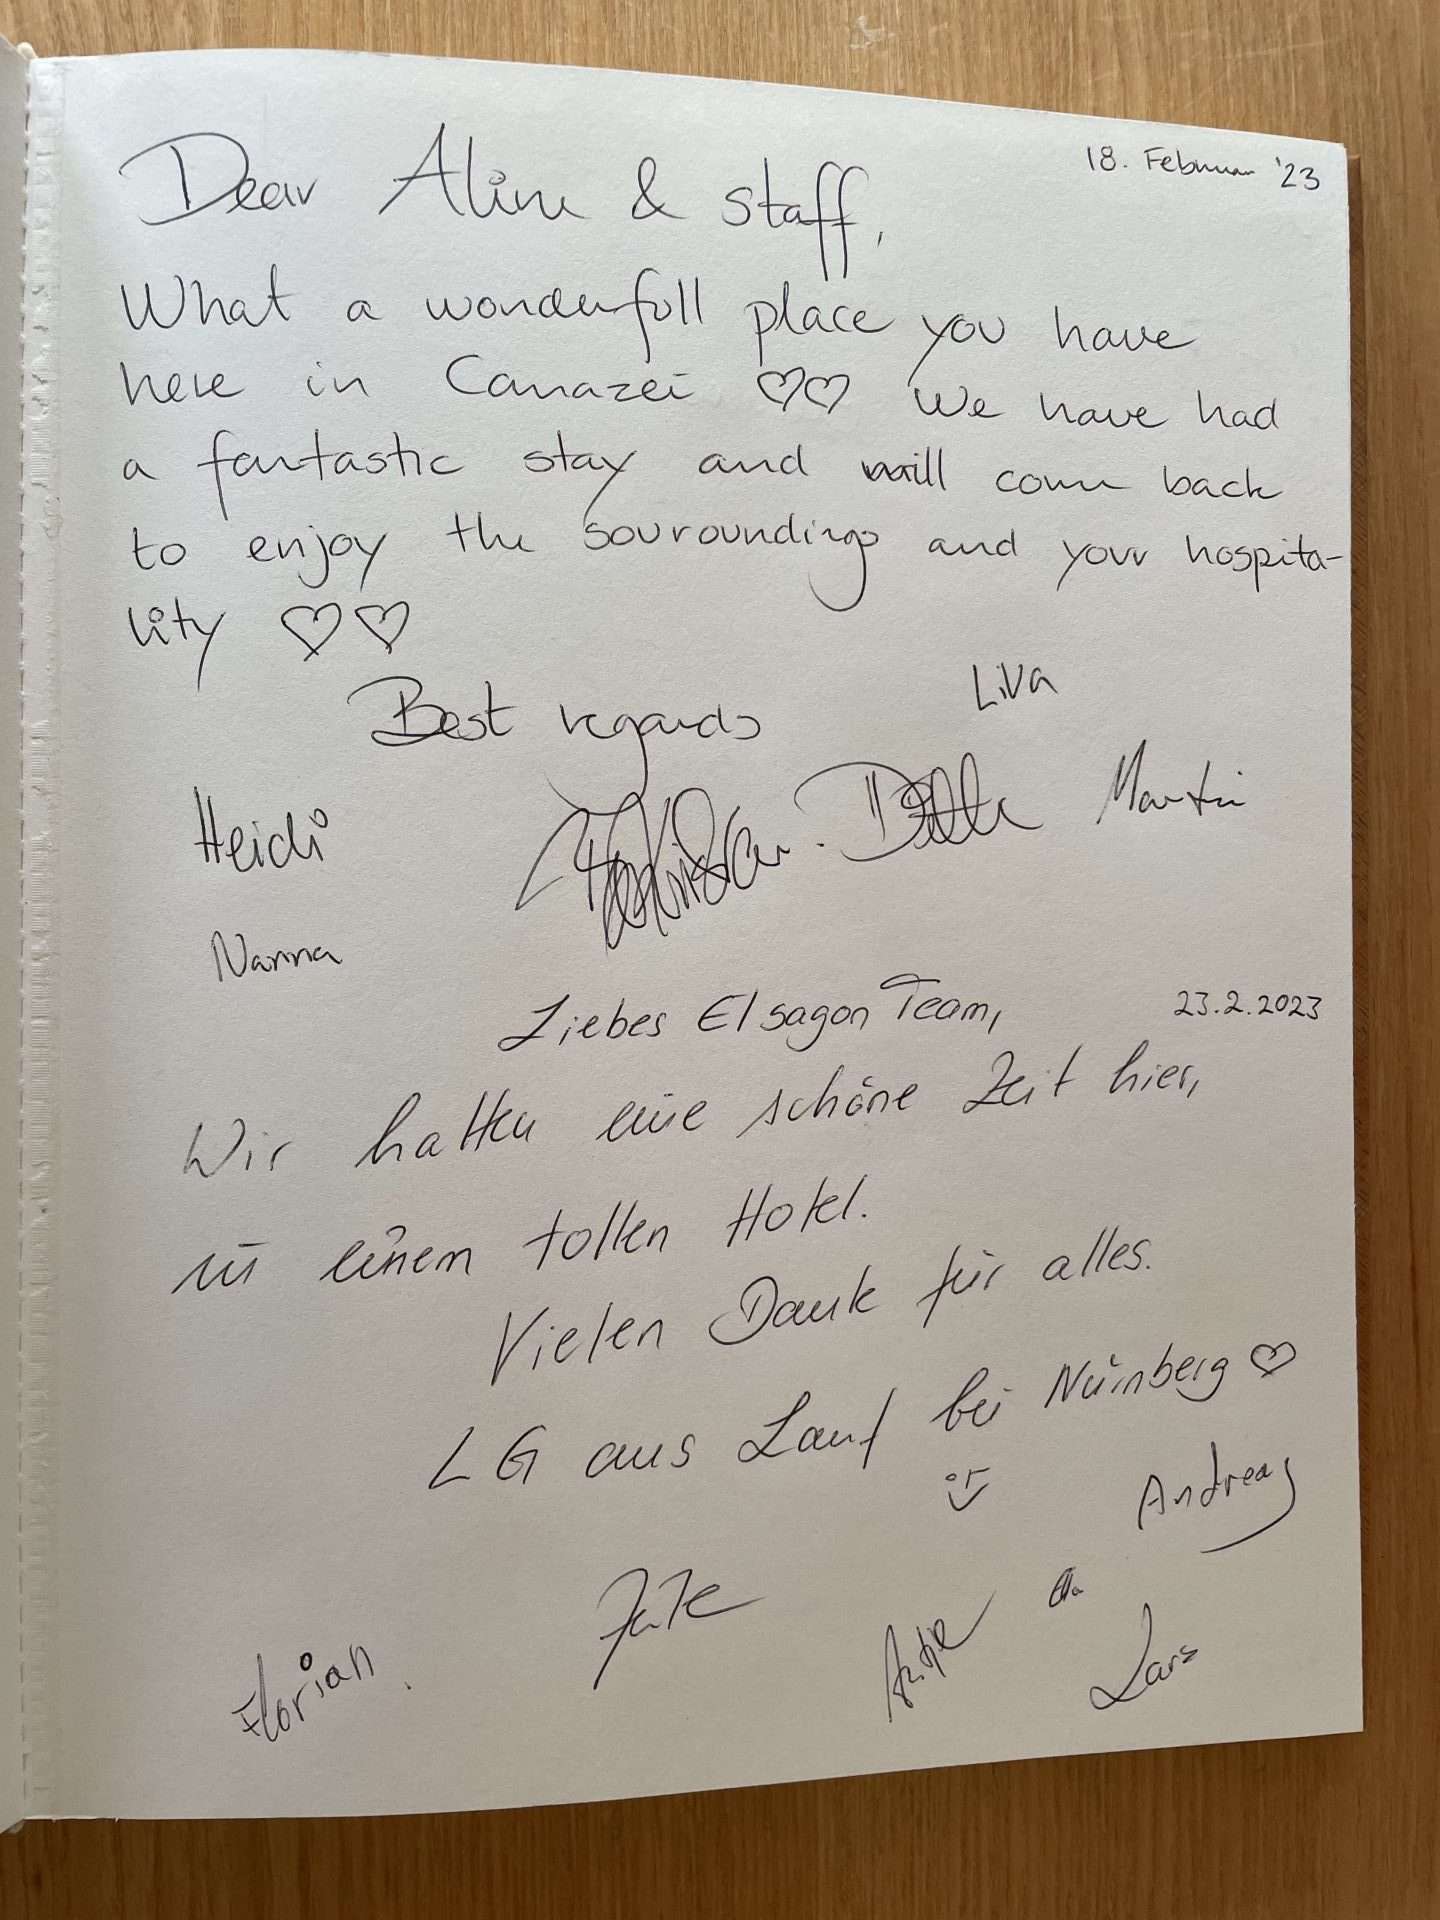 18. Februar '23
Dear Aline & staff,
What a wonderfull place you have
here in Canazei ♡♡ We have had
a fantastic stay and will come back
to enjoy the souroundings and your hospita-
lity ♡♡
Best regards
Liva
Heidi Ditte Martin
Nanna
Liebes El sagon Team, 23.2.2023
Wir hatten eine schöne Zeit hier,
in einem tollen Hotel.
Vielen Dank für alles.
LG aus Lauf bei Nürnberg ♡
Andreas
Florian Antje Lars